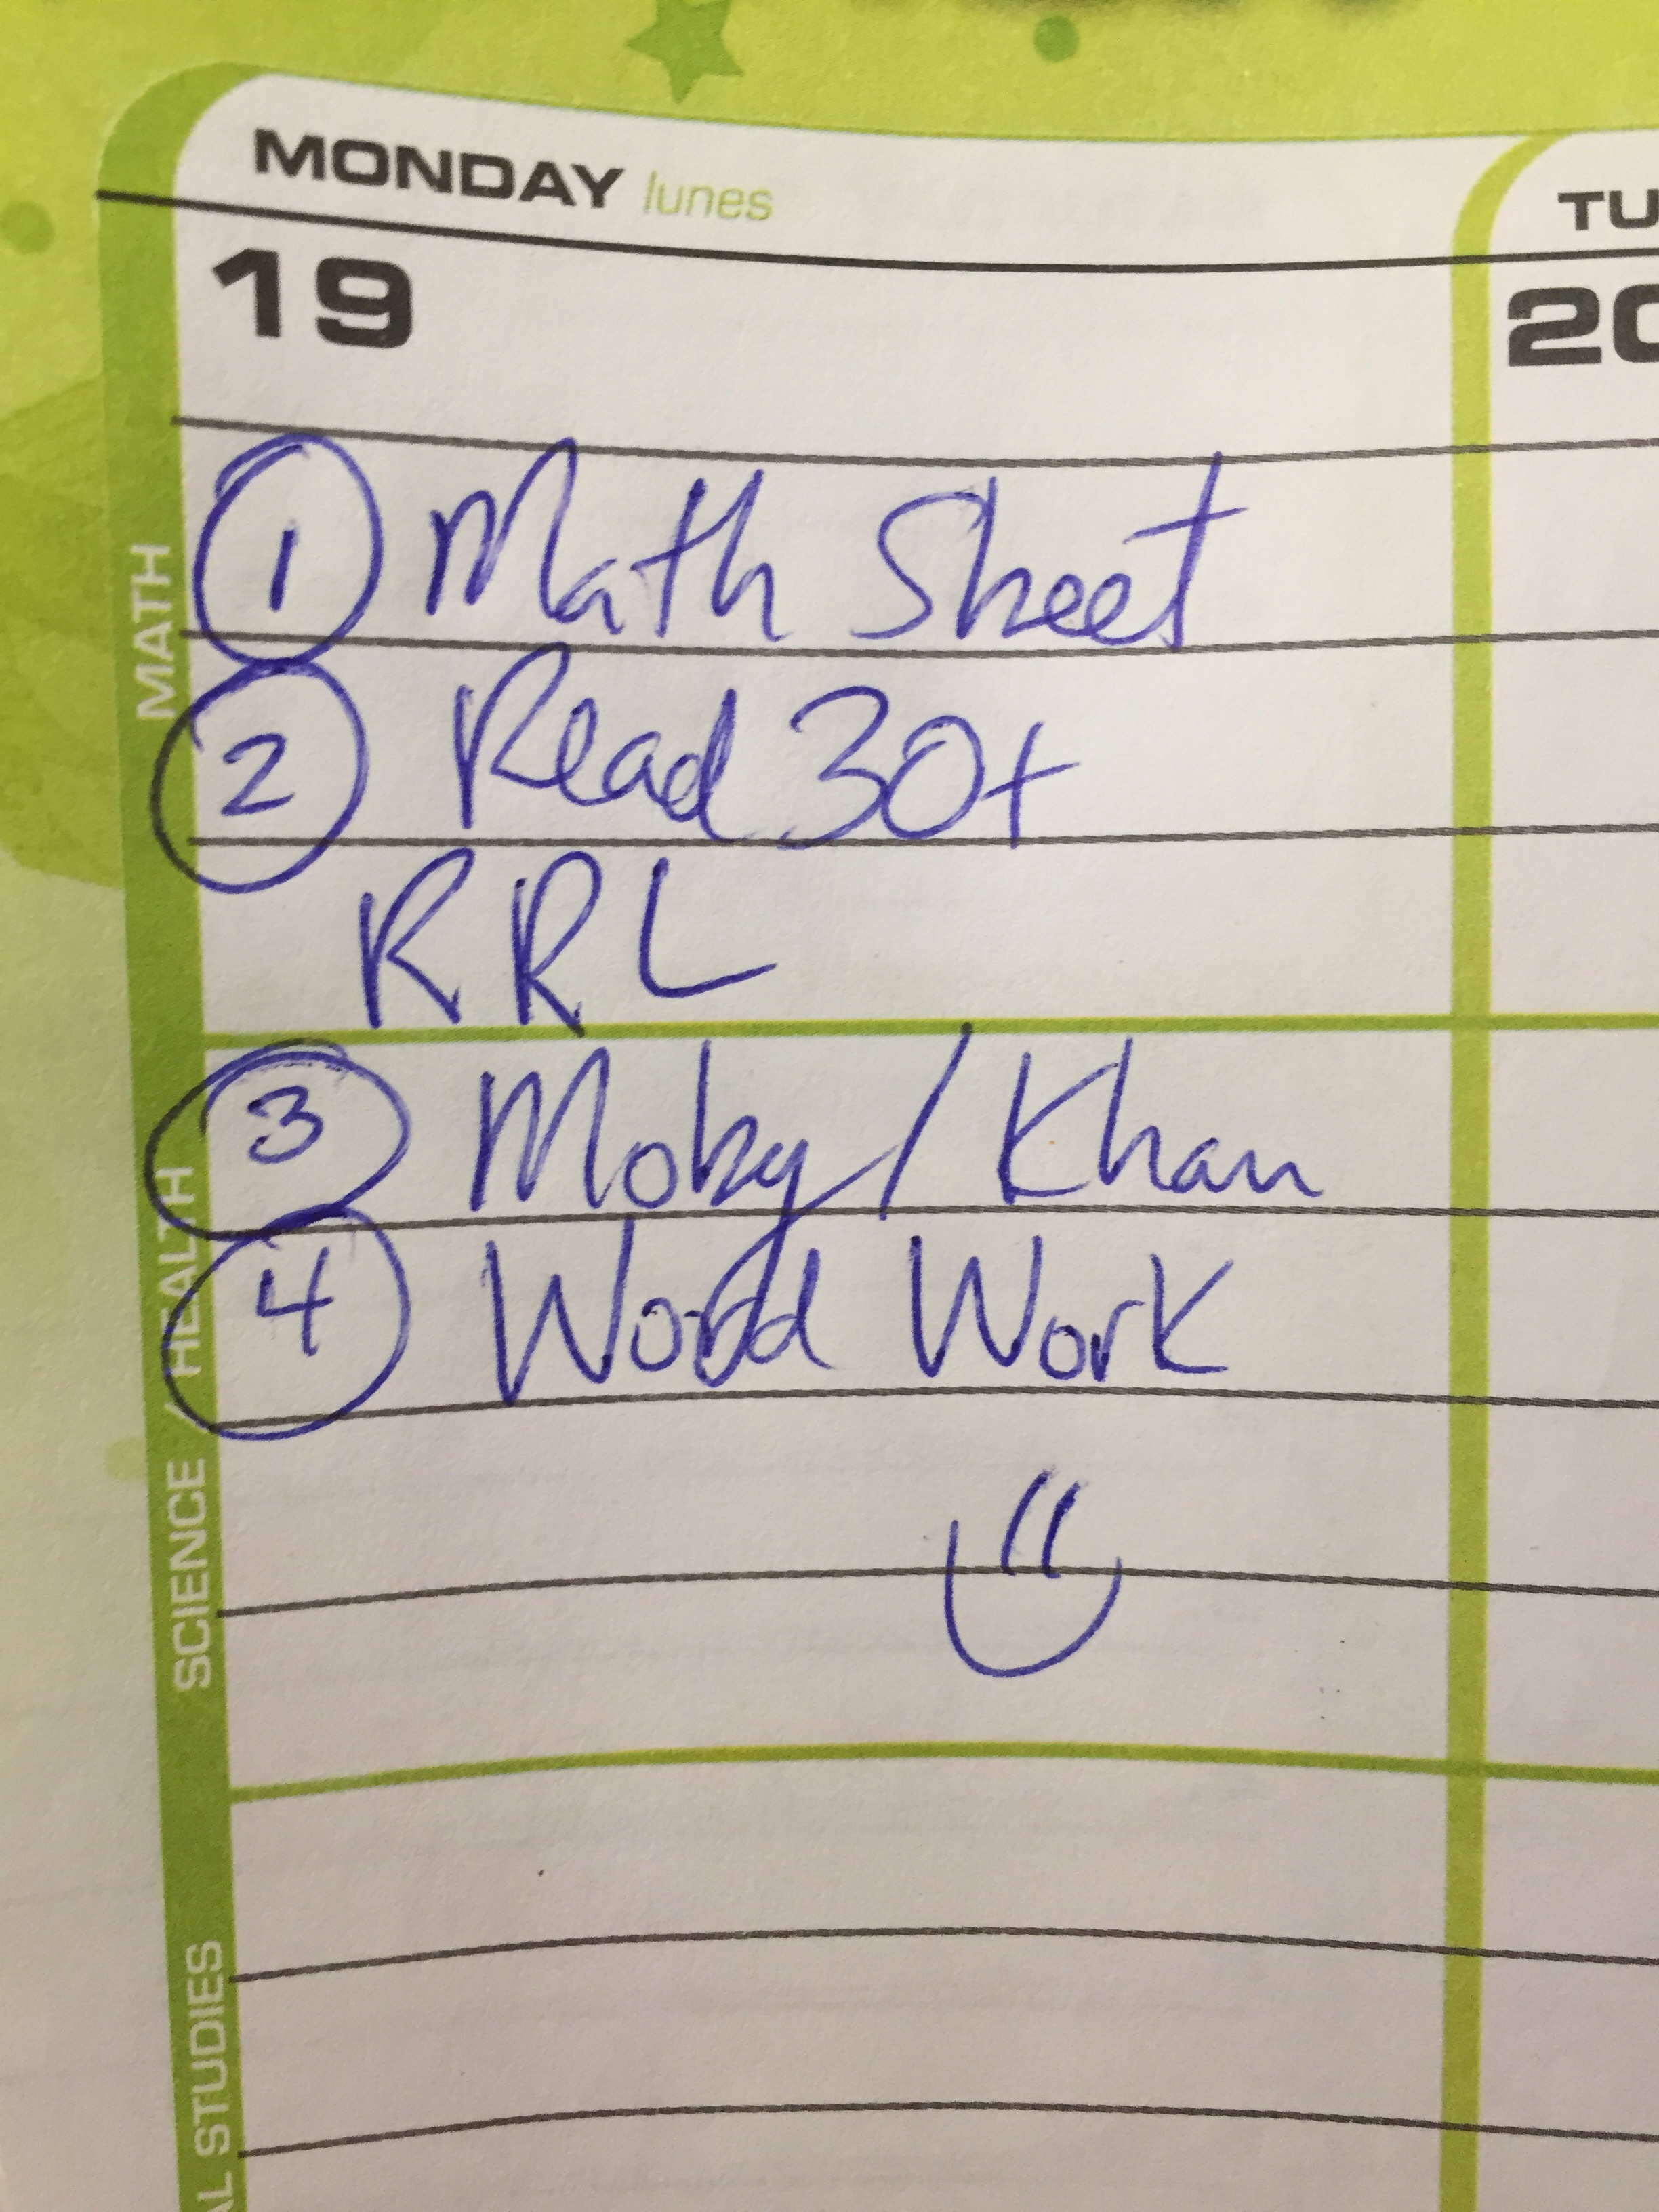 MONDAY lunes
TU
19
20
MATH
1 Math Sheet
2 Read 30+
RRL
SCIENCE / HEALTH
3 Moby / Khan
4 Word Work
AL STUDIES